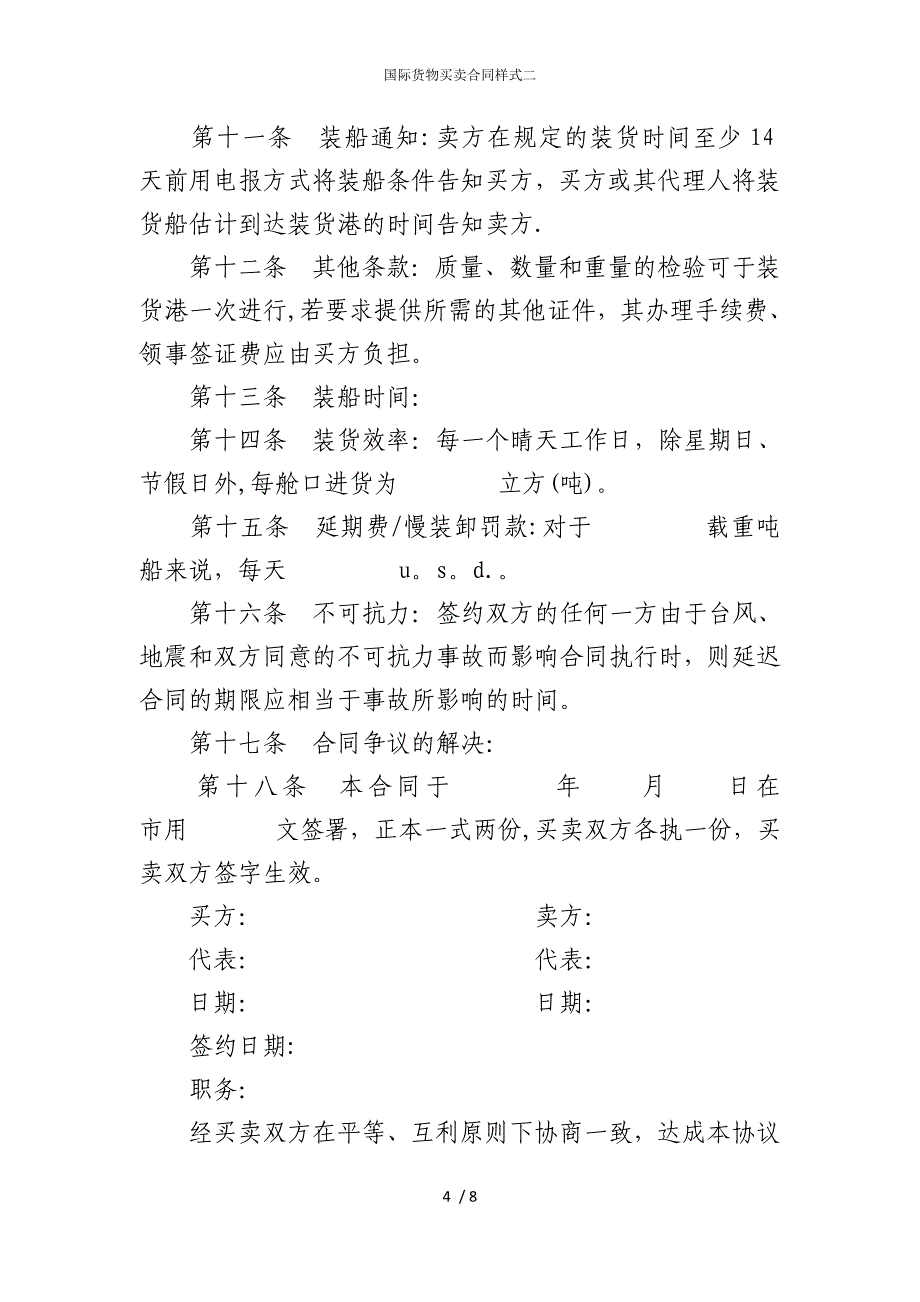 国际货物买卖合同样式二
第十一条　装船通知:卖方在规定的装货时间至少14
天前用电报方式将装船条件告知买方，买方或其代理人将装
货船估计到达装货港的时间告知卖方.
第十二条　其他条款：质量、数量和重量的检验可于装
货港一次进行,若要求提供所需的其他证件，其办理手续费、
领事签证费应由买方负担。
第十三条　装船时间：
第十四条　装货效率：每一个晴天工作日，除星期日、
节假日外,每舱口进货为　　　　立方(吨)。
第十五条　延期费/慢装卸罚款:对于　　　　载重吨
船来说，每天　　　　u。s。d.。
第十六条　不可抗力：签约双方的任何一方由于台风、
地震和双方同意的不可抗力事故而影响合同执行时，则延迟
合同的期限应相当于事故所影响的时间。
第十七条　合同争议的解决：
第十八条　本合同于　　　　年　　月　　日在
市用　　　　文签署，正本一式两份,买卖双方各执一份，买
卖双方签字生效。
买方：　　　　　　　　　　　卖方：
代表：　　　　　　　　　　　代表：
日期：　　　　　　　　　　　日期：
签约日期：
职务：
经买卖双方在平等、互利原则下协商一致，达成本协议
4 / 8